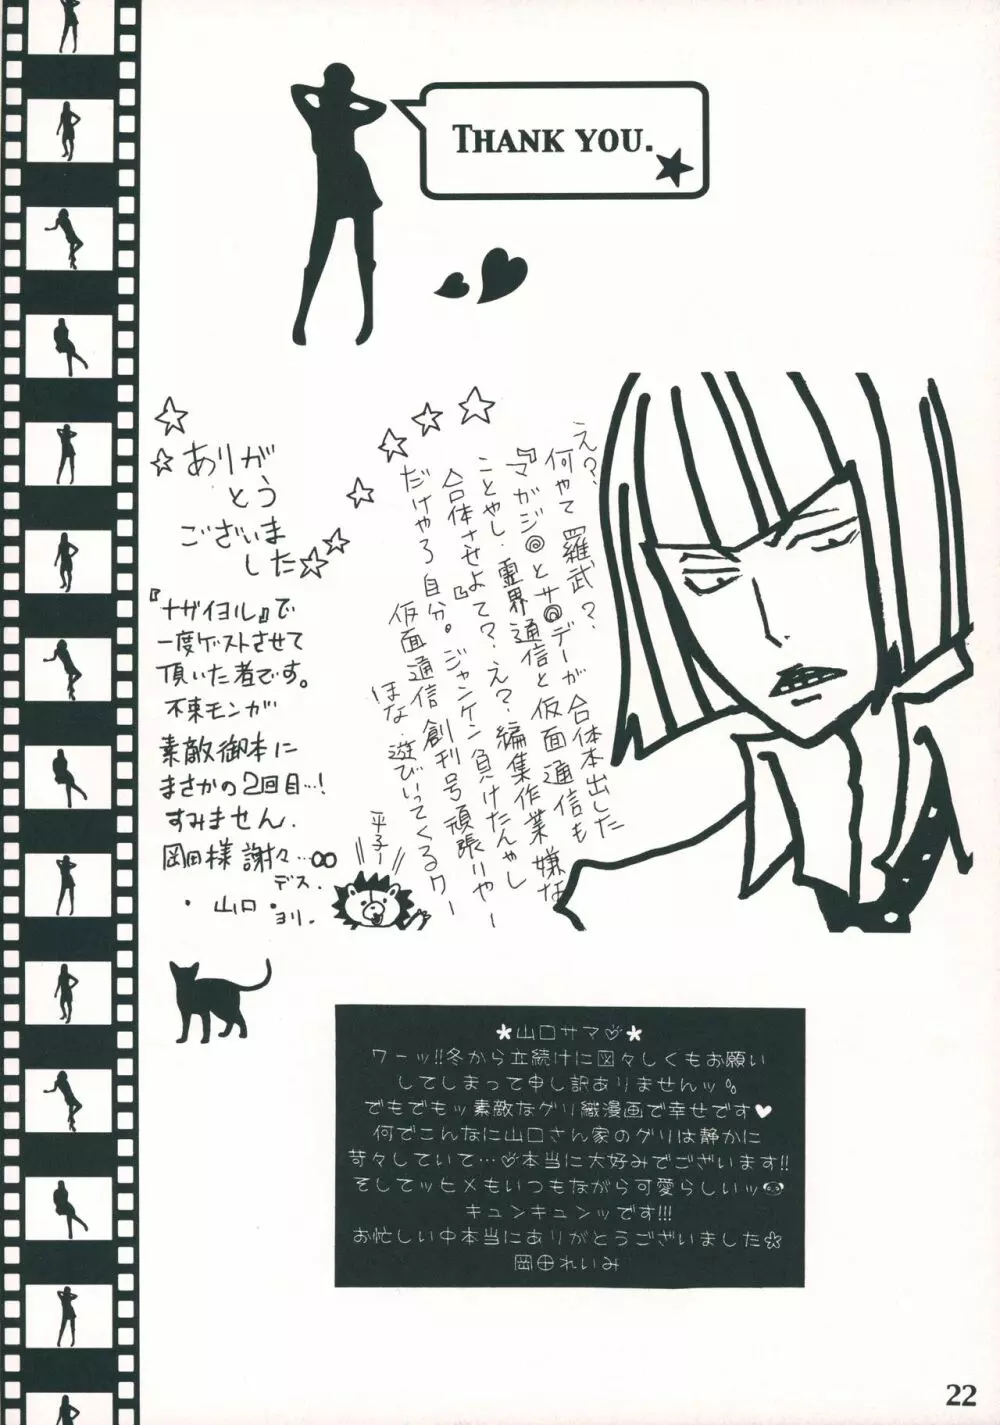 THANK YOU.
え?、
何やて 羅武?、
『マガジ◎とサ◎デーが合体本出した
ことやし、霊界通信と仮面通信も
合体させよて?、え?、編集作業嫌な
だけやろ自分。ジャンケン負けたんやし
仮面通信創刊号頑張りやー
ほな、遊びいってくるワー
平子ー
ありが
とう
ございま
した
『ナザイヨル』で
一度ゲストさせて
頂いた者です。
不束モンが
素敵御本に
まさかの2回目…!
すみません.
岡田様 謝々…∞
デス.
・山口・
ヨリ.
*山口サマ♡*
ワーッ!!冬から立続けに図々しくもお願い
してしまって申し訳ありませんッ。
でもでもッ素敵なグリ織漫画で幸せです♥
何でこんなに山口さん家のグリは静かに
苛々していて…♡本当に大好みでございます!!
そしてッヒメもいつもながら可愛らしいッ
キュンキュンッです!!!
お忙しい中本当にありがとうございました☆
岡田れいみ
22